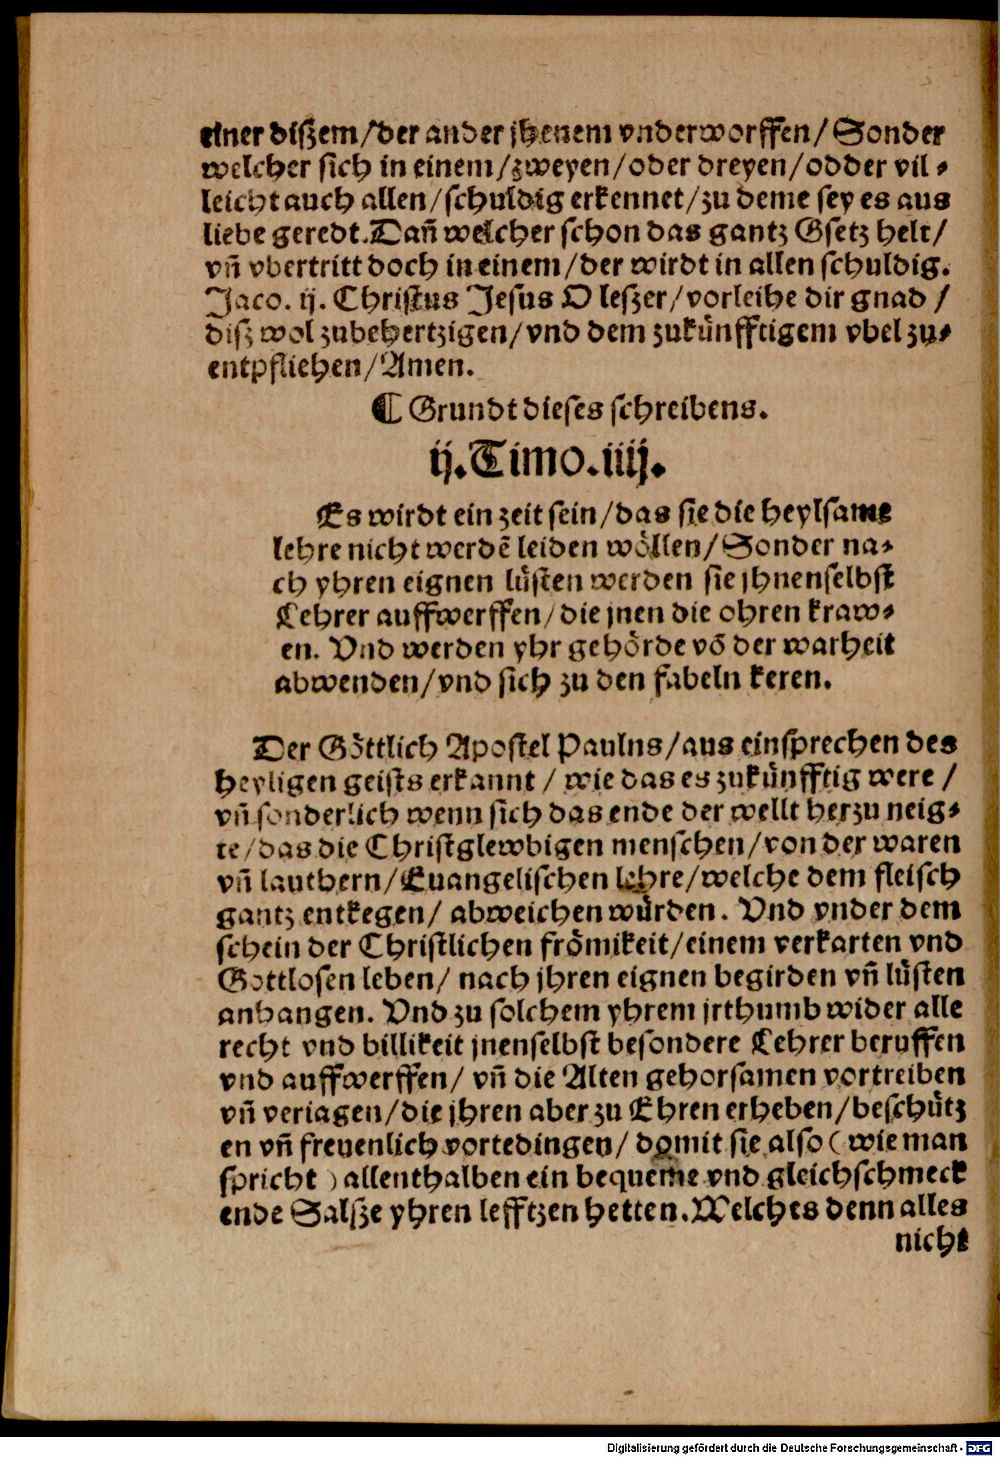 einer diſzem/der ander jhenem vnderworffen/Sonder
welcher ſich in einem/zweyen/oder dreyen/odder vil ⸗
leicht auch allen/ſchuldig erkennet/zu deme ſey es aus
liebe geredt.Dañ welcher ſchon das gantz Gſetz helt/
vñ vbertritt doch in einem/der wirdt in allen ſchuldig.
Jaco. ij. Chriſtus Jeſus O leſzer/vorleihe dir gnad /
diſz wol zubehertzigen/vnd dem zukuͤnfftigem vbel zu⸗
entpfliehen/Amen.
¶ Grundt dieſes ſchreibens.
ij.Timo.iiij.
Es wirdt ein zeit ſein/das ſie die heylſame
lehre nicht werdē leiden woͤllen/Sonder na⸗
ch yhren eignen luͤſten werden ſie jhnenſelbſt
Lehrer auffwerffen/die jnen die ohren kraw⸗
en. Vnd werden yhr gehoͤrde vō der warheit
abwenden/vnd ſich zu den fabeln keren.
Der Goͤttlich Apoſtel Paulns/aus einſprechen des
heyligen geiſts erkannt / wie das es zukuͤnfftig were /
vñ ſonderlich wenn ſich das ende der wellt herzu neig⸗
te/das die Chriſtglewbigen menſchen/von der waren
vñ lauthern/Euangeliſchen lehre/welche dem fleiſch
gantz entkegen/ abweichen wuͤrden. Vnd vnder dem
ſchein der Chriſtlichen froͤmikeit/einem verkarten vnd
Gottloſen leben/ nach jhren eignen begirden vñ luͤſten
anhangen. Vnd zu ſolchem yhrem jrthumb wider alle
recht vnd billikeit jnenſelbſt beſondere Lehrer beruffen
vnd auffwerffen/ vñ die Alten gehorſamen vortreiben
vñ veriagen/die jhren aber zu Ehren erheben/beſchuͤtz
en vñ freuenlich vortedingen/ domit ſie alſo ( wie man
ſpricht ) allenthalben ein bequeme vnd gleichſchmeck
ende Salſze yhren lefftzen hetten.Welches denn alles
nicht
Digitalisierung gefördert durch die Deutsche Forschungsgemeinschaft - DFG